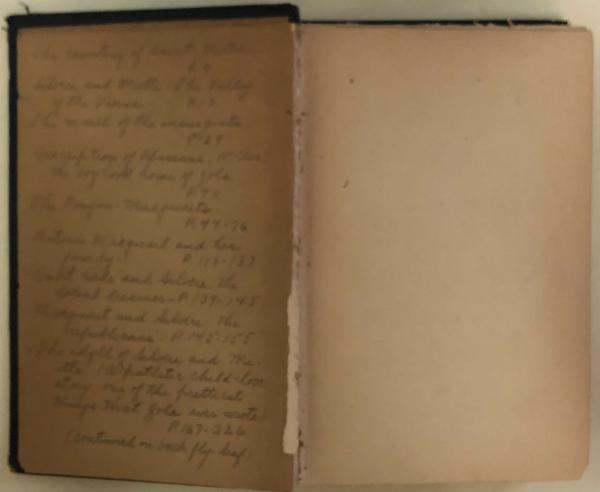 The country of Saint Mittre
P. 9
Silvere and Miette. The Valley
of the Viorne P. 17
The march of the insurgents
P. 29
Description of Plassans,
the boyhood home of Zola
P. 40
The Rougon-Macquarts
P. 44-76
Antoine Macquart and his
family. P. 113-137
Aunt Dide and Silvere, the
social dreamer - P. 139-145
Macquart and Silvere, the
republicans. P. 145-155
The idyll of Silvere and Mi-
ette. (a pathetic child-love
story one of the prettiest
things that Zola ever wrote)
P. 167-226
(continued on back fly leaf)